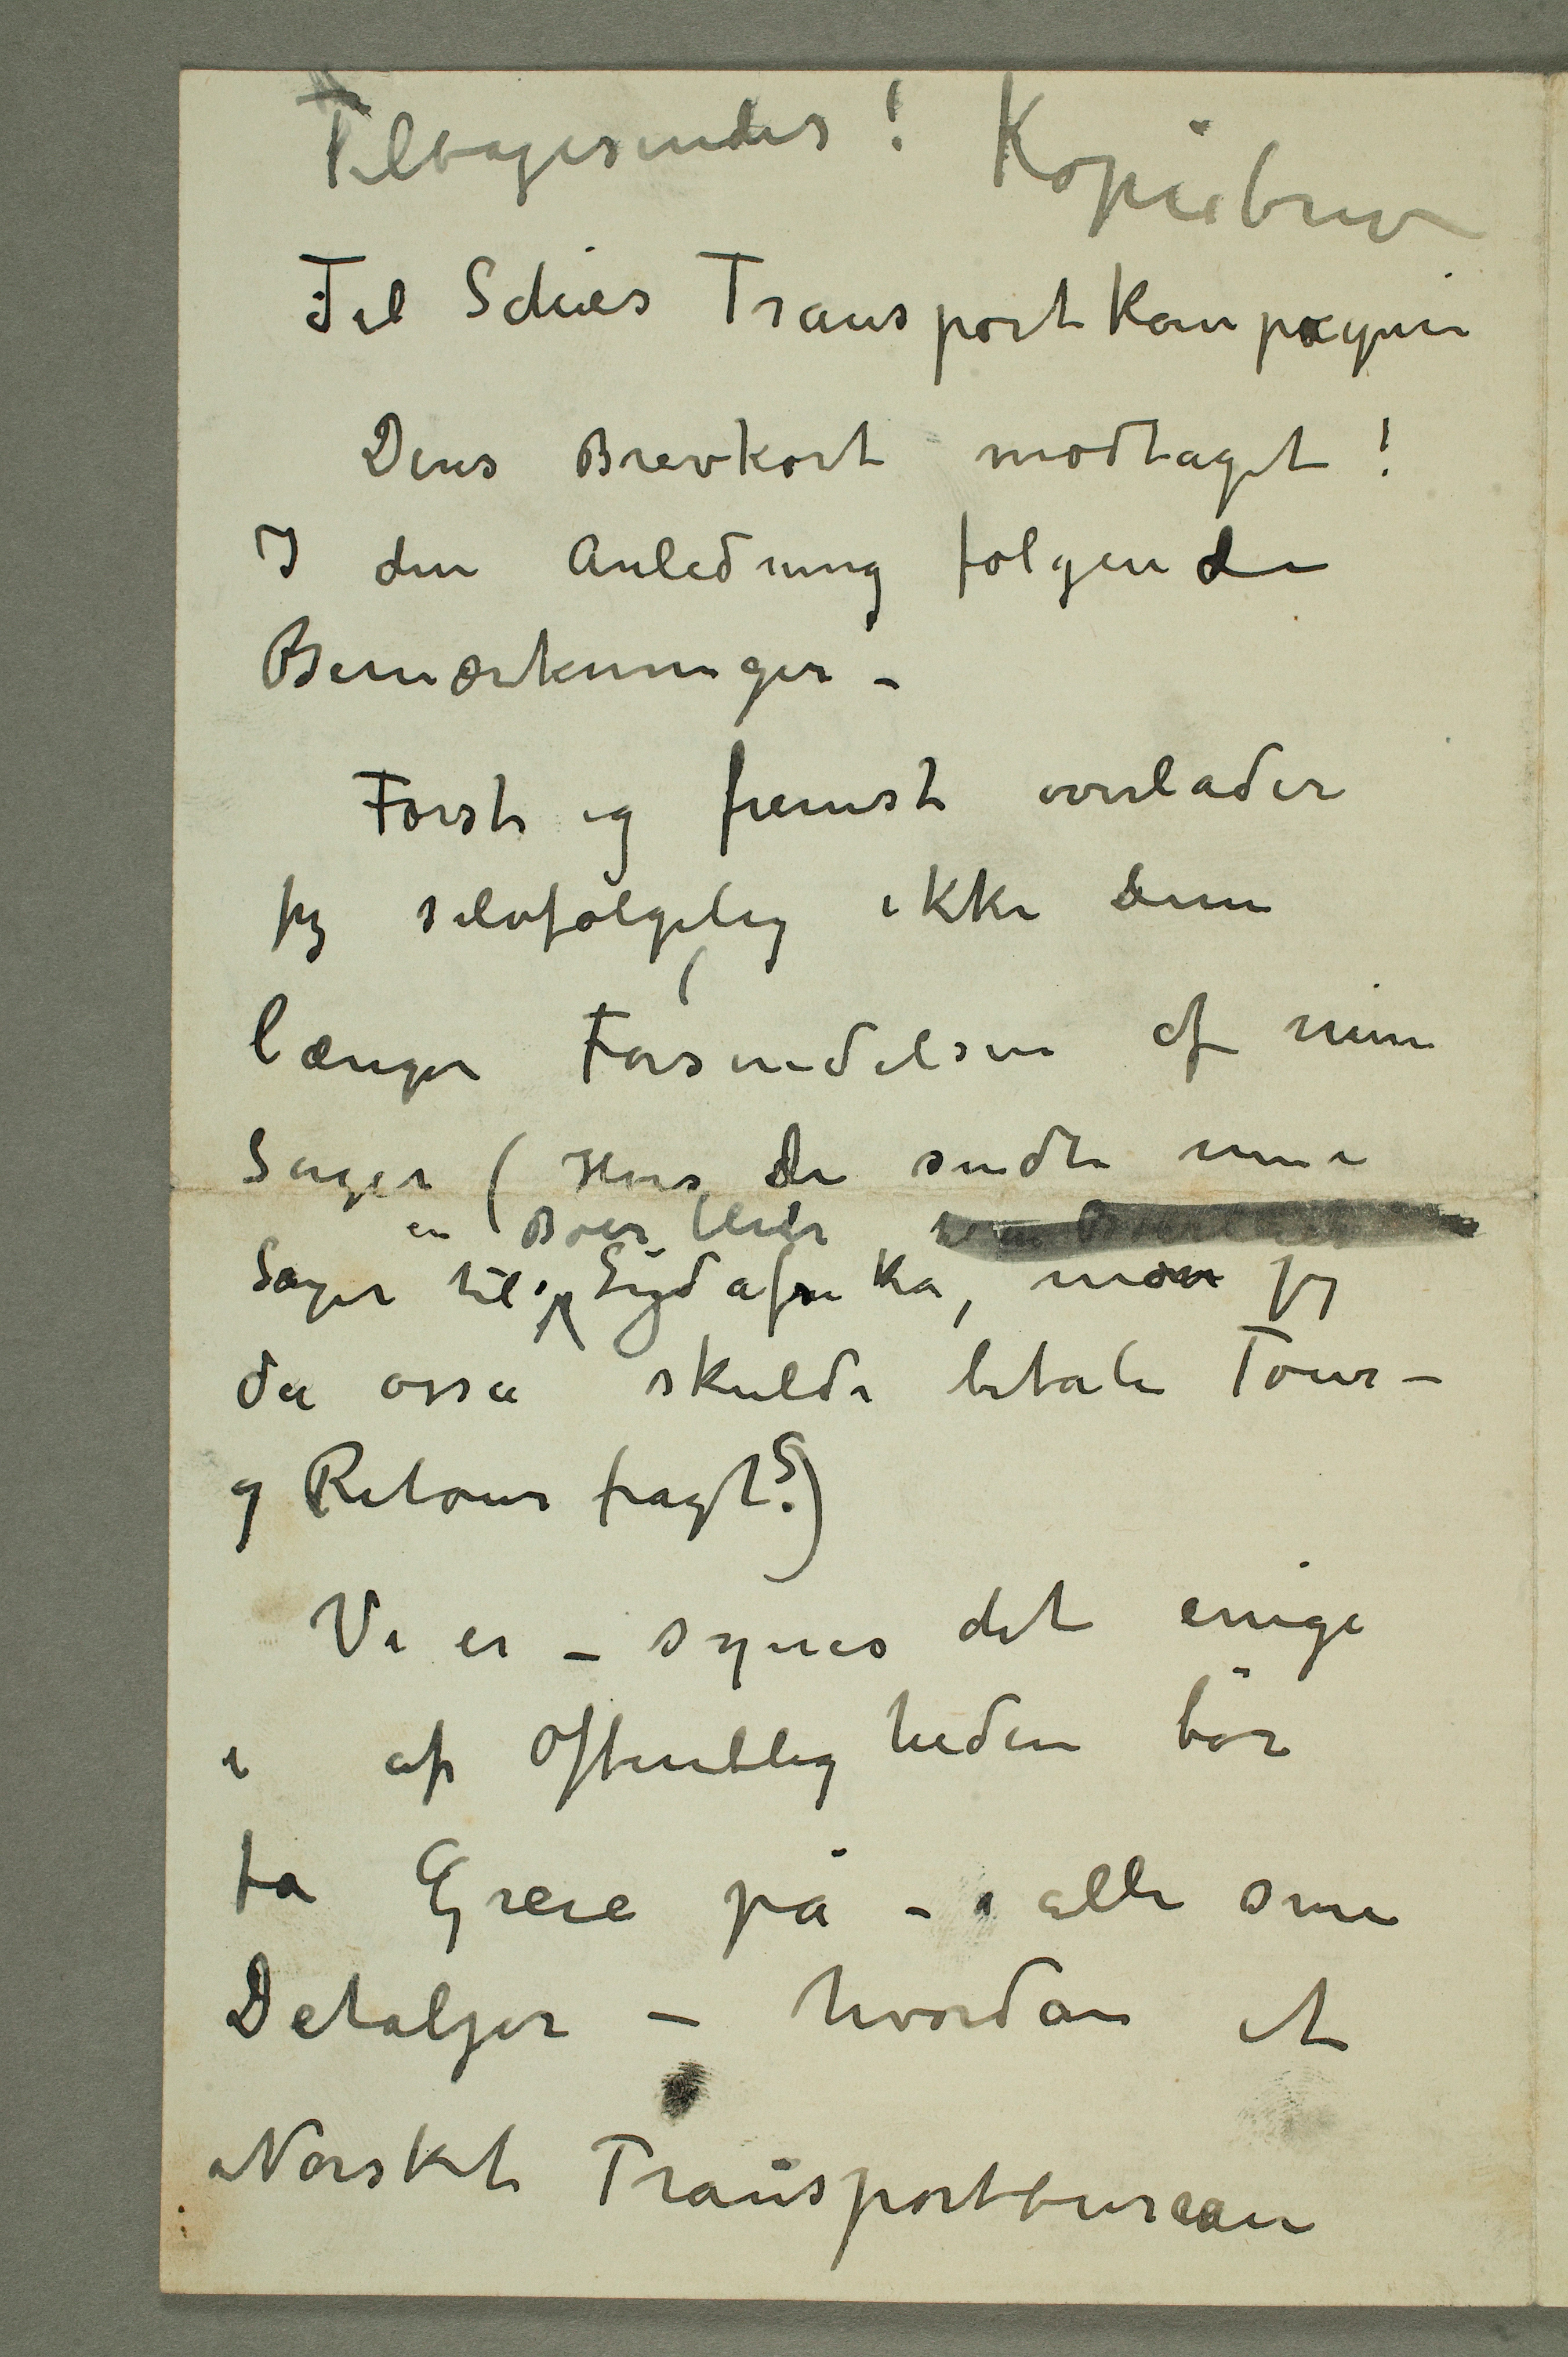 Tilbagesendes! Kopiebrev
Til Schies Transportkompagni
Deres Brevkort modtaget!
I den Anledning følgende
Bemærkninger –
Først og fremst overlader
jeg selvfølgelig ikke dem
længer Forsendelsen af mine
Sager (Hvis de sendte mine
en Boer
Sager til Sydafrika, mon jeg
da osså skulde betale Tour-
og Retour fragt?)
Vi er – synes det enige
i at Offentligheden bør
få Greie på – i alle sine
Detaljer – hvordan et
Norskt Transportbureau